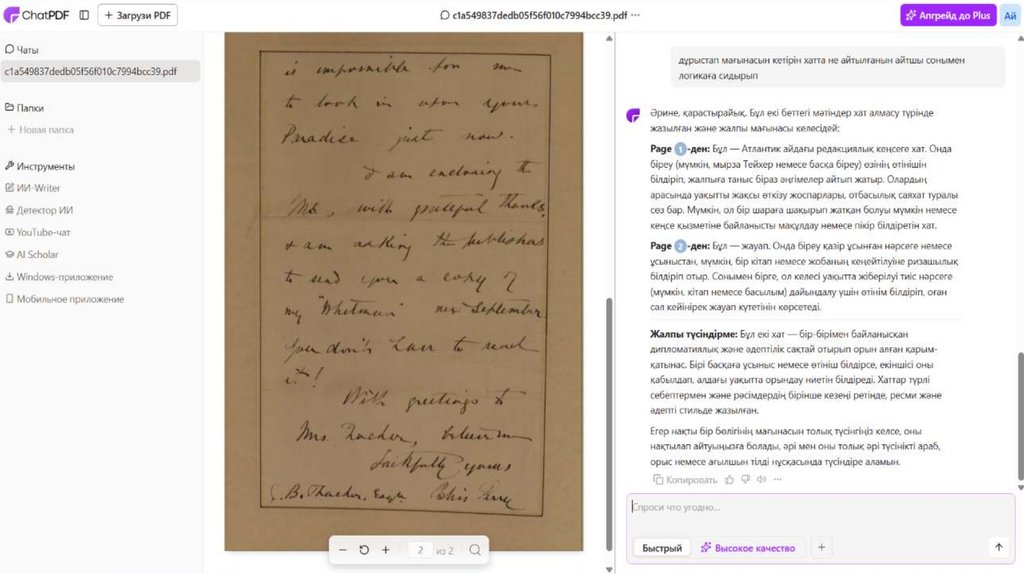 ChatPDF
+ Загрузи PDF
c1a549837dedb05f56f010c7994bcc39.pdf ···
Апгрейд до Plus
Ай
Чаты
c1a549837dedb05f56f010c7994bcc39.pdf
Папки
+ Новая папка
Инструменты
ИИ-Writer
Детектор ИИ
YouTube-чат
AI Scholar
Windows-приложение
Мобильное приложение
is impossible for me
to look in upon your
Paradise just now.
I am enclosing the
MS., with grateful thanks,
& am asking the publishers
to send you a copy of
my "Whitman" next September
You don't have to read
it!
With greetings to
Mrs. Thacher, believe me
Faithfully yours
B. Thacher, Esq. Bliss Perry
− + 2 из 2
дұрыстап мағынасын кетірін хатта не айтылғанын айтшы сонымен
логикаға сидырып
Әрине, қарастырайық. Бұл екі беттегі мәтіндер хат алмасу түрінде
жазылған және жалпы мағынасы келесідей:
Page 1-ден: Бұл — Атлантик айдағы редакциялық кеңсеге хат. Онда
біреу (мүмкін, мырза Тейхер немесе басқа біреу) өзінің өтінішін
білдіріп, жалпыға таныс біраз әңгімелер айтып жатыр. Олардың
арасында уақытты жақсы өткізу жоспарлары, отбасылық саяхат туралы
сөз бар. Мүмкін, ол бір шараға шақырып жатқан болуы мүмкін немесе
кеңсе қызметіне байланысты мақұлдау немесе пікір білдіретін хат.
Page 2-ден: Бұл — жауап. Онда біреу қазір ұсынған нәрсеге немесе
ұсыныстан, мүмкін, бір кітап немесе жобаның кеңейтілуіне ризашылық
білдіріп отыр. Сонымен бірге, ол келесі уақытта жіберілуі тиіс нәрсеге
(мүмкін, кітап немесе басылым) дайындалу үшін өтінім білдіріп, оған
сәл кейінірек жауап күтетінін көрсетеді.
Жалпы түсіндірме: Бұл екі хат — бір-бірімен байланысқан
дипломатиялық және әдептілік сақтай отырып орын алған қарым-
қатынас. Бірі басқаға ұсыныс немесе өтініш білдірсе, екіншісі оны
қабылдап, алдағы уақытта орындау ниетін білдіреді. Хаттар түрлі
себептермен және рәсімдердің бірінше кезеңі ретінде, ресми және
әдепті стильде жазылған.
Егер нақты бір бөлігінің мағынасын толық түсінгіңіз келсе, оны
нақтылап айтуыңызға болады, әрі мен оны толық әрі түсінікті араб,
орыс немесе ағылшын тілді нұсқасында түсіндіре аламын.
Копировать ···
Спроси что угодно...
Быстрый Высокое качество +